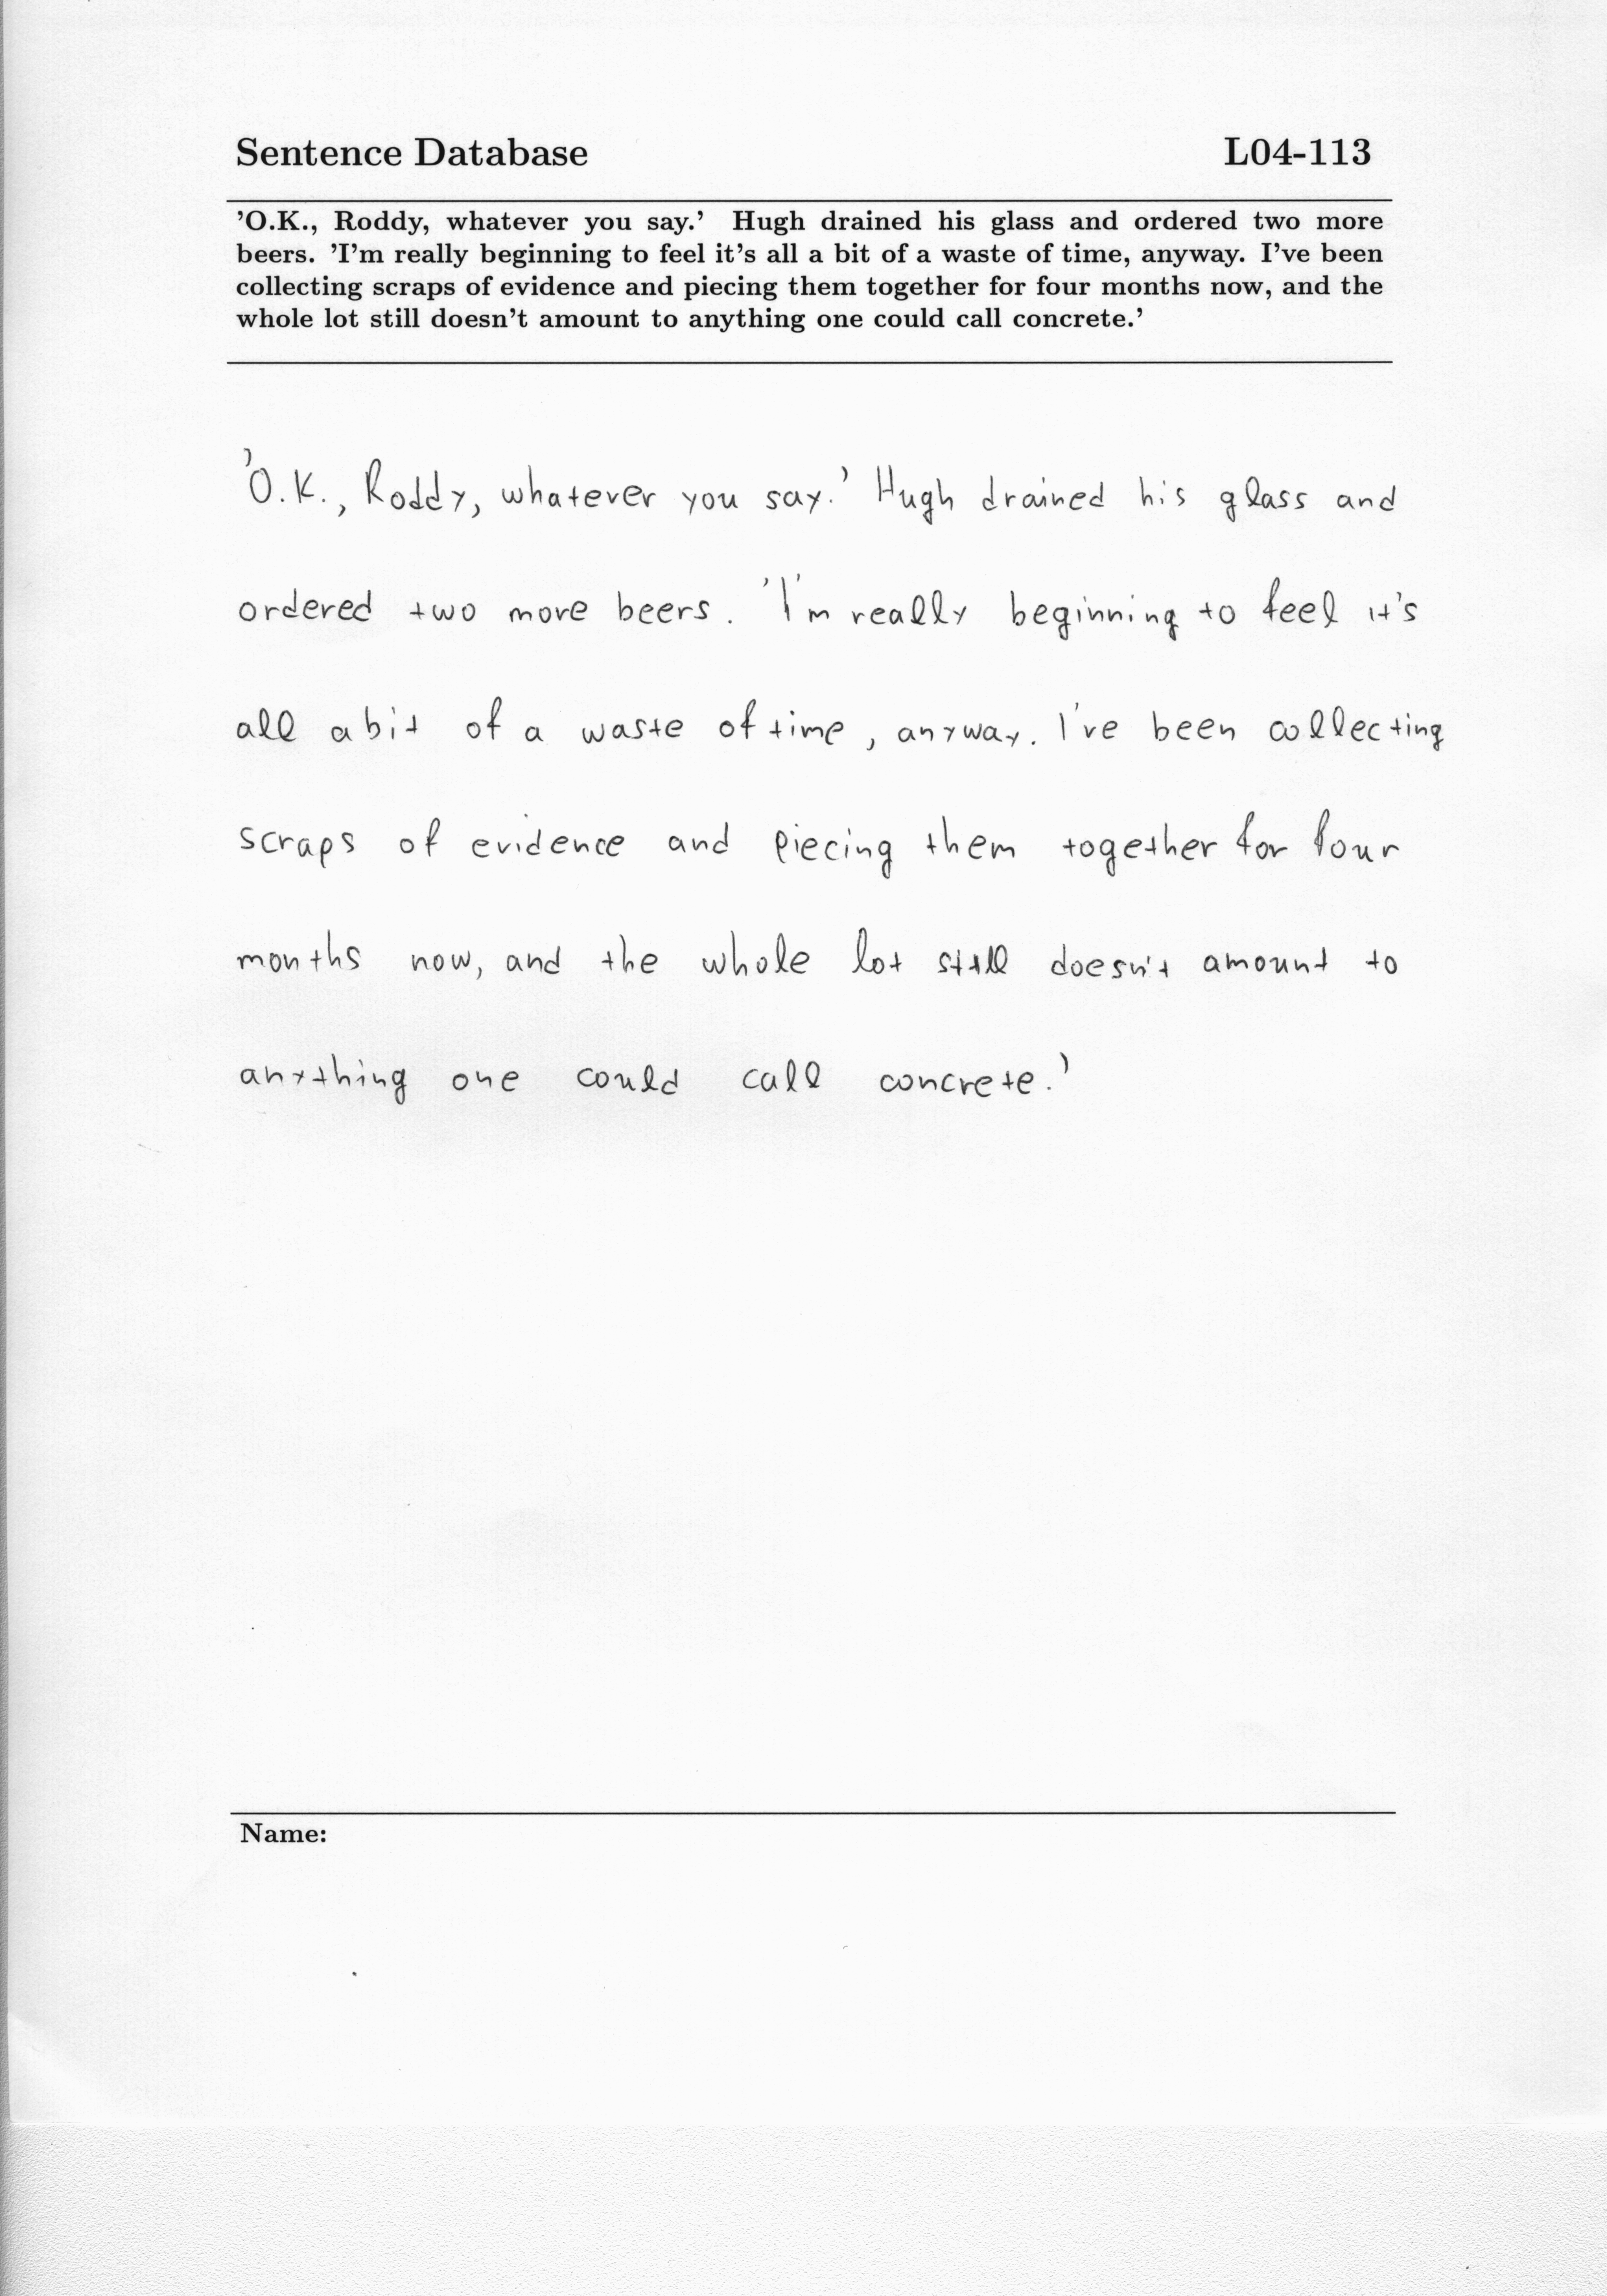 Sentence Database L04-113
'O.K., Roddy, whatever you say.' Hugh drained his glass and ordered two more
beers. 'I'm really beginning to feel it's all a bit of a waste of time, anyway. I've been
collecting scraps of evidence and piecing them together for four months now, and the
whole lot still doesn't amount to anything one could call concrete.'
'O.K., Roddy, whatever you say.' Hugh drained his glass and
ordered two more beers. 'I'm really beginning to feel it's
all a bit of a waste of time, anyway. I've been collecting
scraps of evidence and piecing them together for four
months now, and the whole lot still doesn't amount to
anything one could call concrete.'
Name: